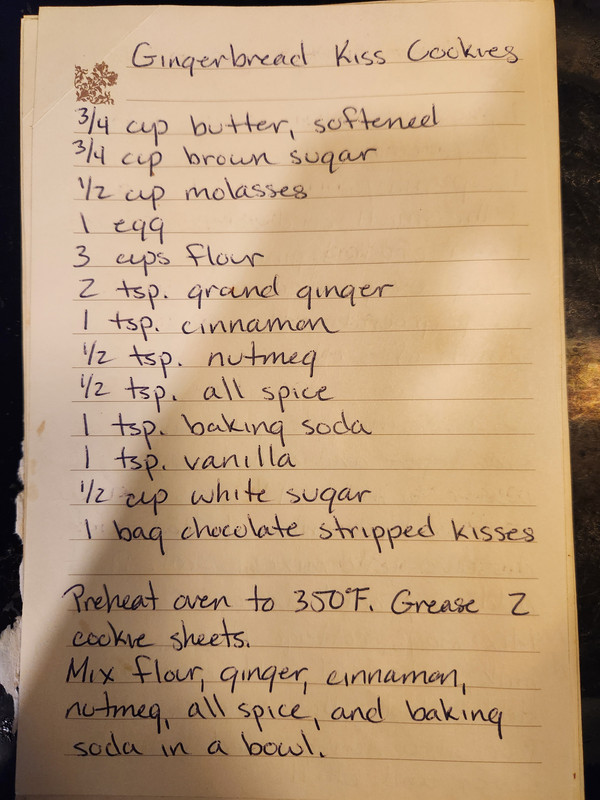 Gingerbread Kiss Cookies
3/4 cup butter, softened
3/4 cup brown sugar
1/2 cup molasses
1 egg
3 cups flour
2 tsp. ground ginger
1 tsp. cinnamon
1/2 tsp. nutmeg
1/2 tsp. all spice
1 tsp. baking soda
1 tsp. vanilla
1/2 cup white sugar
1 bag chocolate stripped kisses
Preheat oven to 350°F. Grease 2
cookie sheets.
Mix flour, ginger, cinnamon,
nutmeg, all spice, and baking
soda in a bowl.